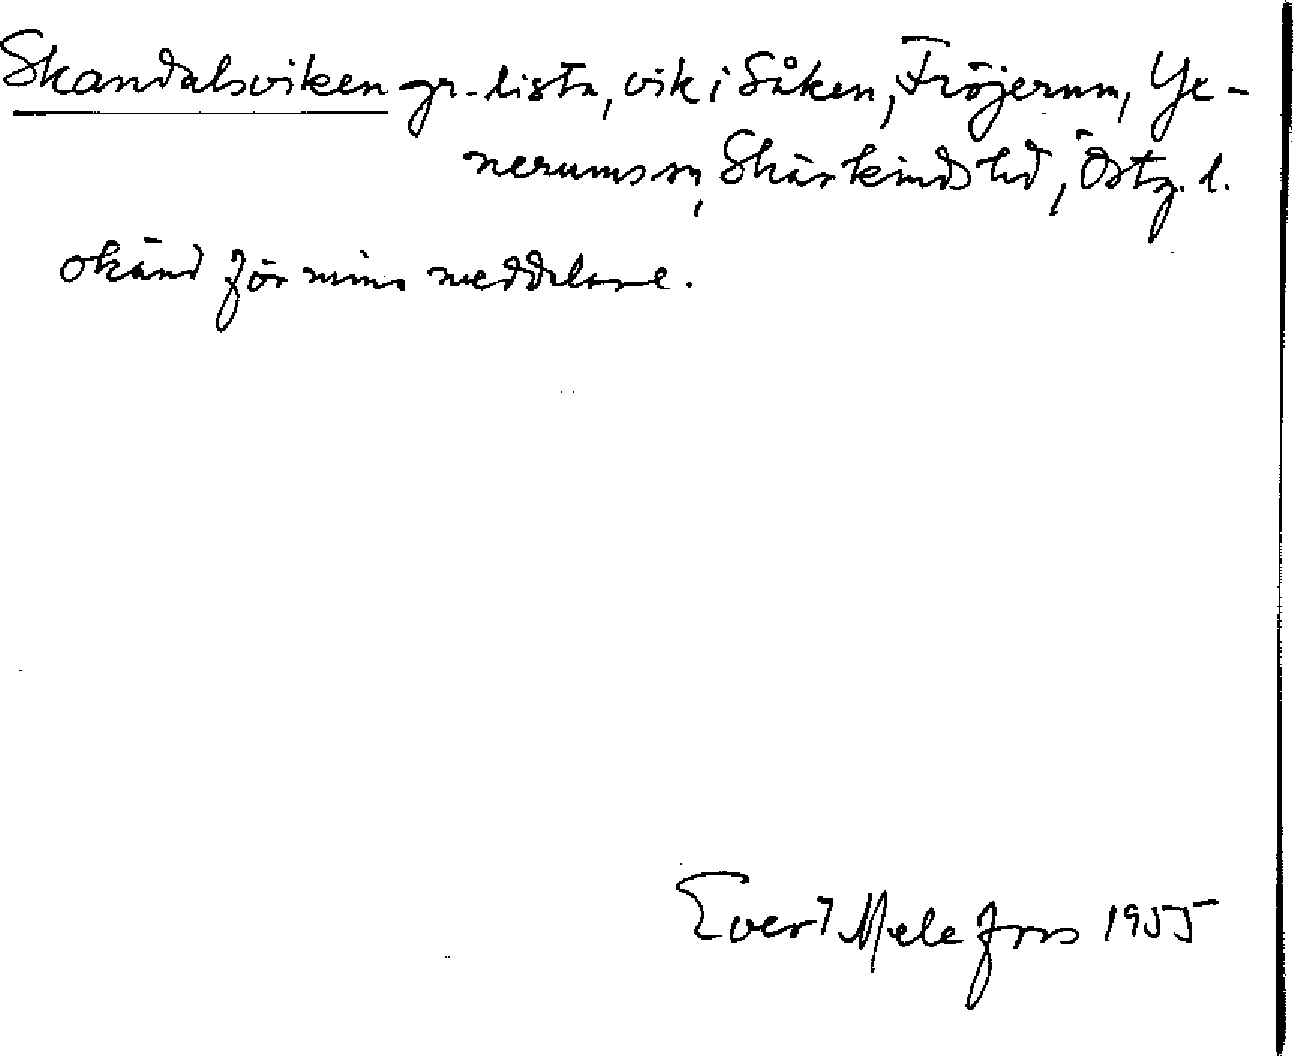 Skandalsviken gr-lista, vik i Såken, Fröjerum, Ye-
nerums sn, Skärkinds hd, Östg. l.
okänd för mina meddelare.
Evert Melefors 1955